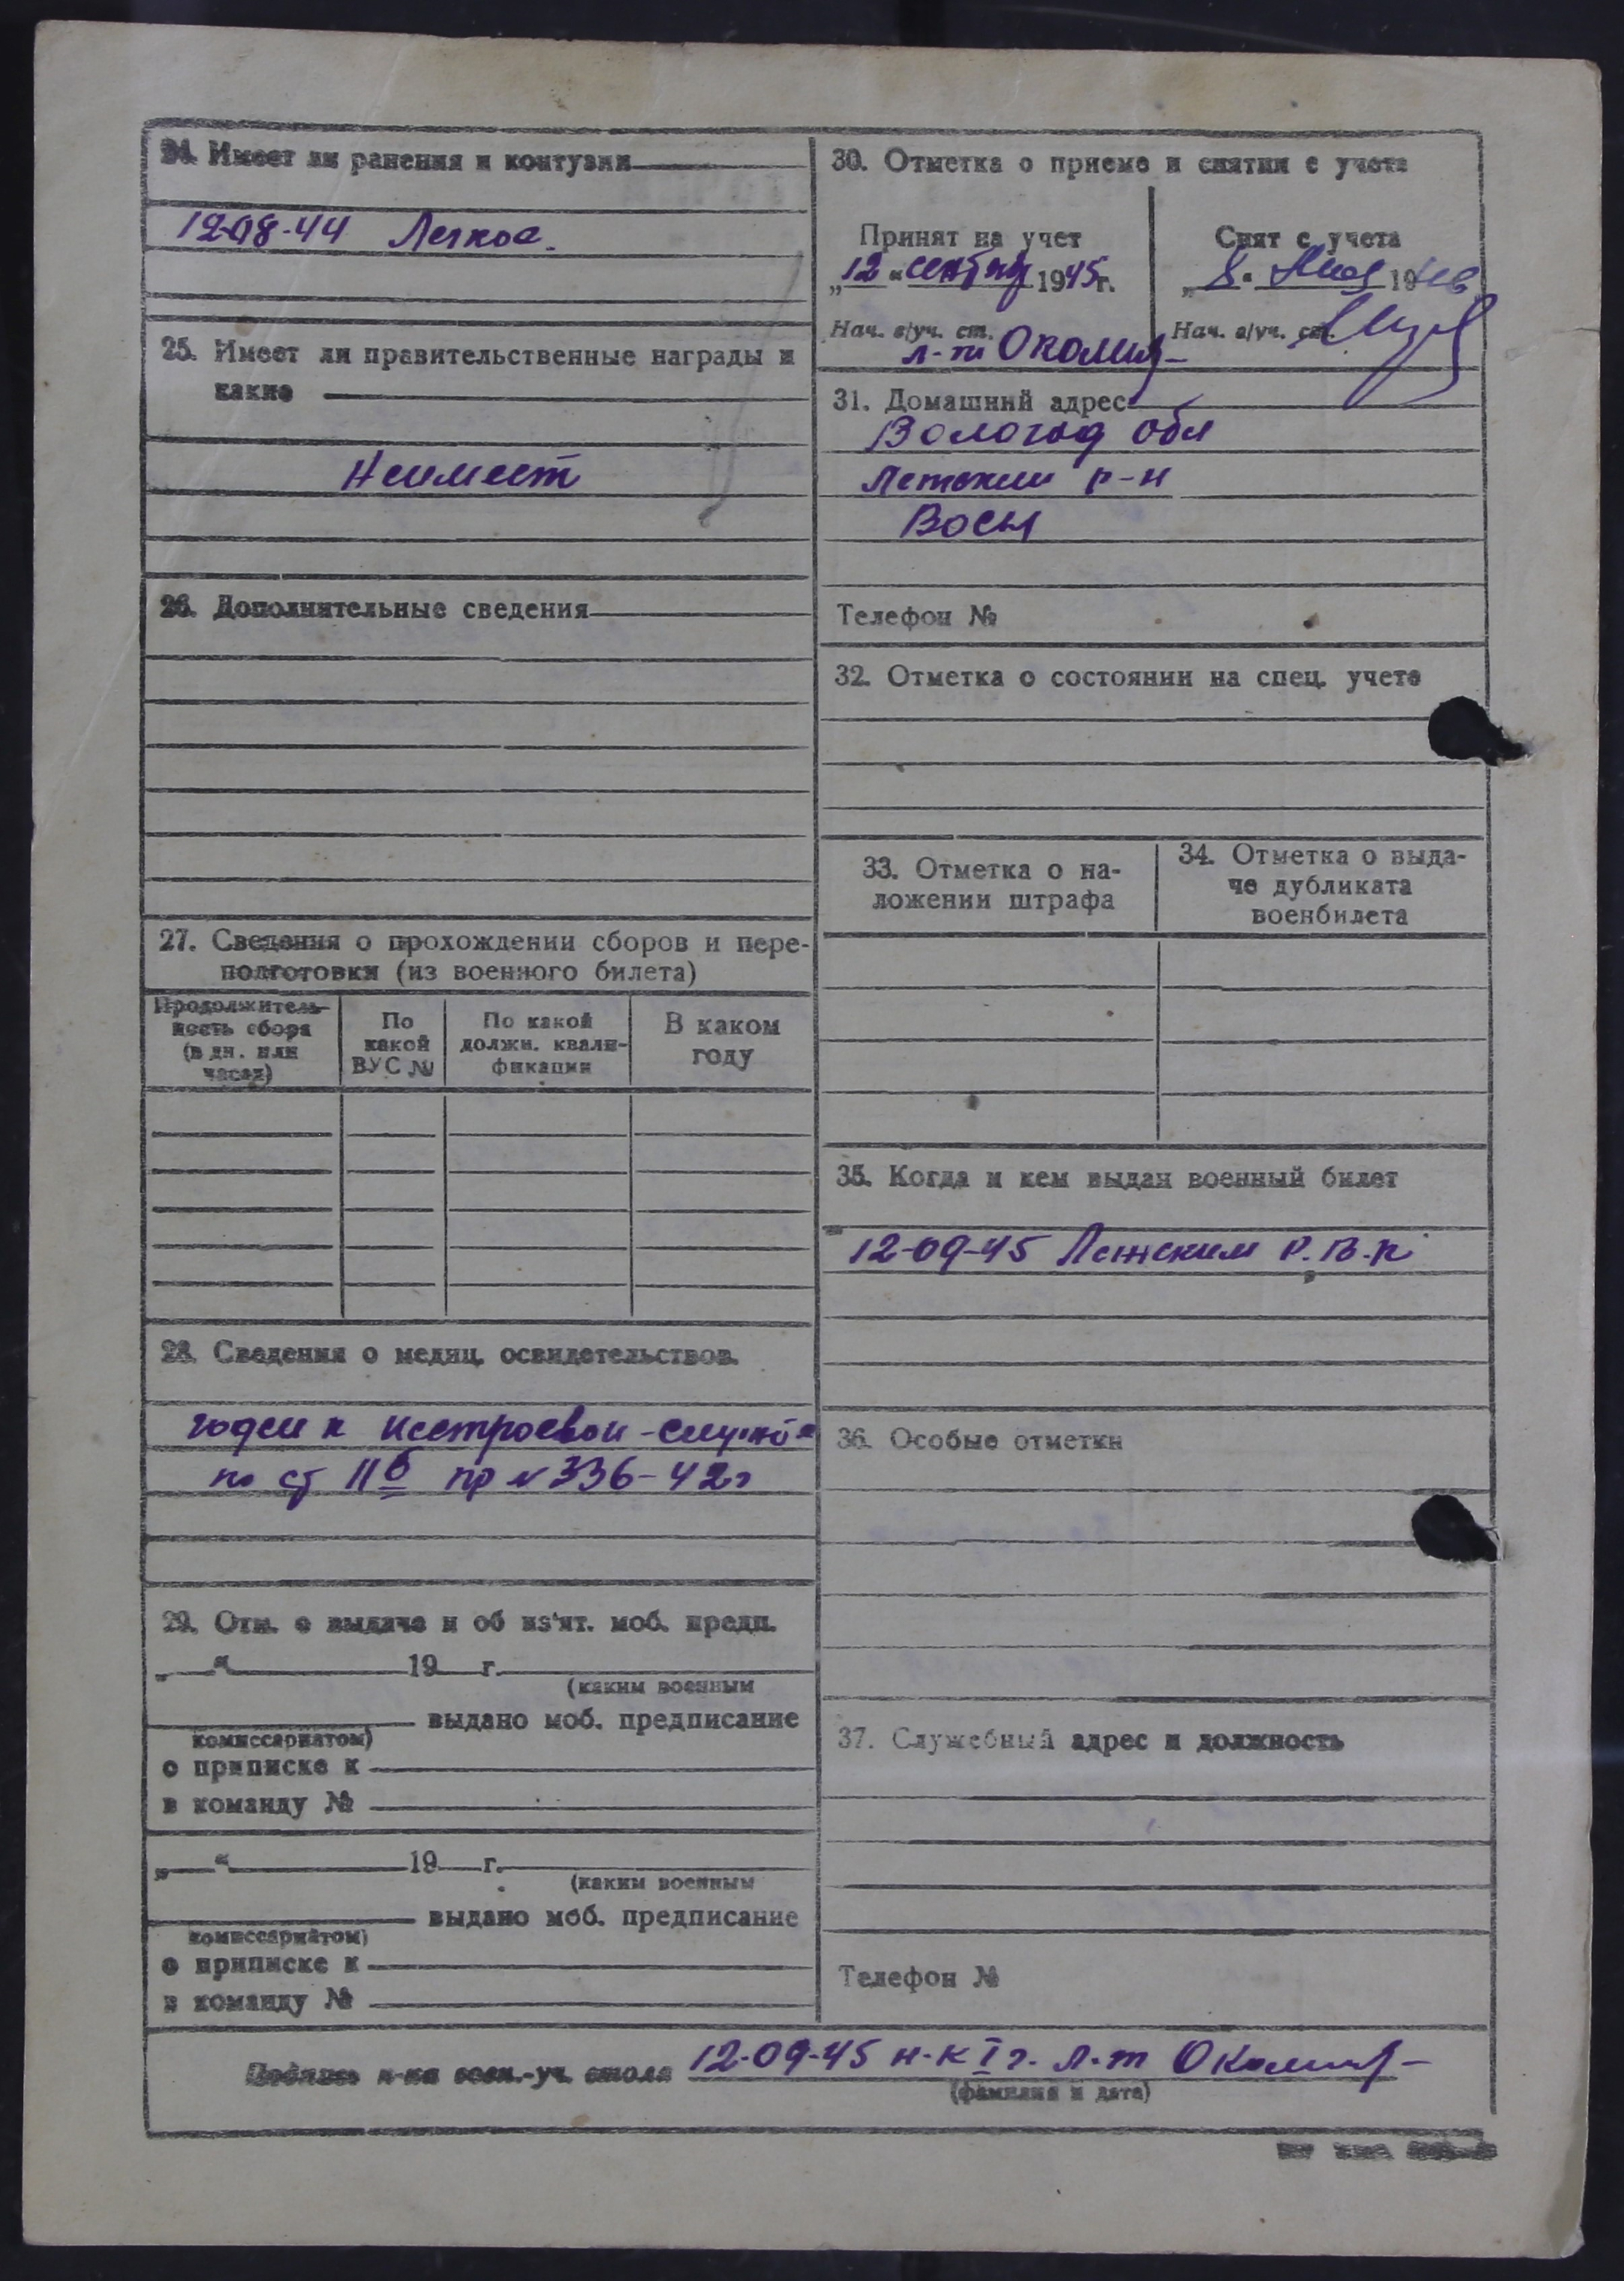 24. Имеет ли ранения и контузии
12-08-44 Легкое.
25. Имеет ли правительственные награды и
какие
Неимеет
26. Дополнительные сведения
27. Сведения о прохождении сборов и пере-
подготовки (из военного билета)
Продолжитель-
ность сбора
(в дн. или
часах)
По
какой
ВУС №
По какой
должн. квали-
фикации
В каком
году
28. Сведения о медиц. освидетельствов.
годен к нестроевой - службе
по ст II б пр № 336-42г
29. Отм. о выдаче и об из'ят. моб. предп.
„ “ 19 г.
(каким военным
выдано моб. предписание
комиссариатом)
о приписке к
в команду №
„ “ 19 г.
(каким военным
выдано моб. предписание
комиссариатом)
о приписке к
в команду №
30. Отметка о приеме и снятии с учета
Принят на учет
„12“ сентбря 1945г.
Нач. в/уч. ст.
л-т
Снят с учета
„8“ 19
Нач. в/уч. ст.
31. Домашний адрес
Вологод обл
Летский р-н
Телефон №
32. Отметка о состоянии на спец. учете
33. Отметка о на-
ложении штрафа
34. Отметка о выда-
че дубликата
военбилета
35. Когда и кем выдан военный билет
12-09-45 Летским Р.В.К
36. Особые отметки
37. Служебный адрес и должность
Телефон №
Подпись н-ка воен.-уч. стола 12-09-45 н-к I г. л-т
(фамилия и дата)